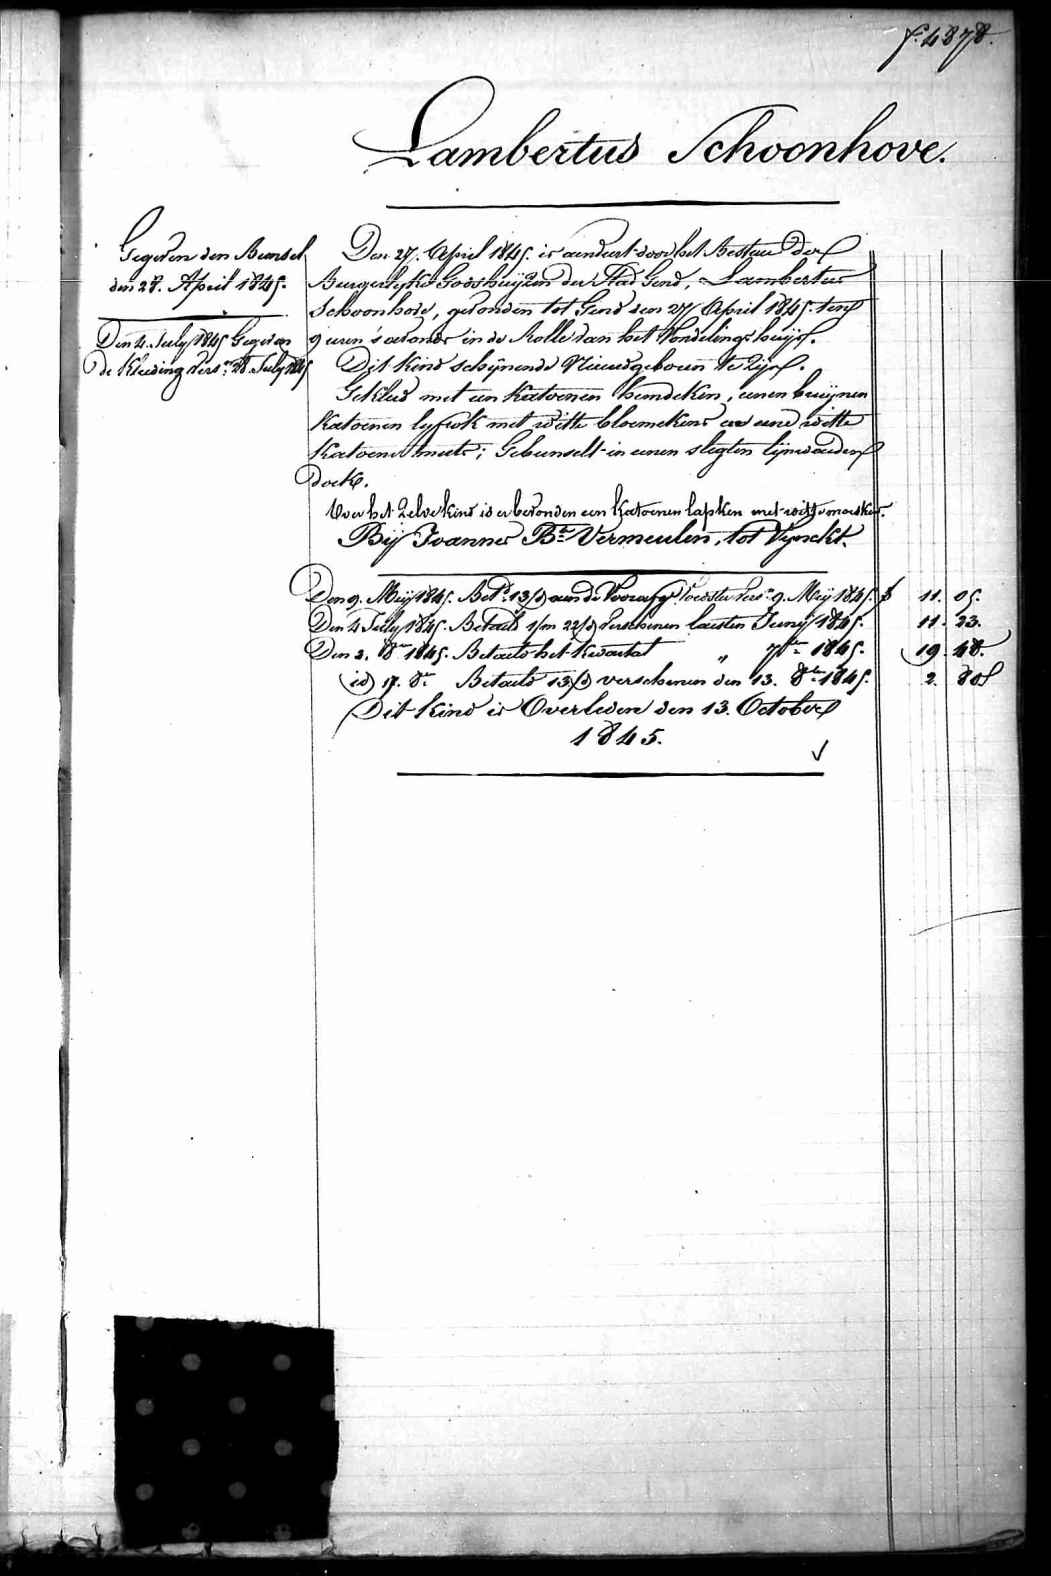 f. 4878.
Lambertus Schoonhove.
Gegeven den Bunsel
den 28. April 1845.
Den 4. July 1845 Gegeven
de Kleeding Vers.n 28 July 1845
Den 27. April 1845. is aenveert door het Bestuer der
Burgerlyke Godshuijzen der Stad Gend, Lambertus
Schoonhove, gevonden tot Gend den 27 April 1845. ten
9 uren s'avonds in de Rolle van het Vondelingshuijs.
Dit kind schijnende Nieuwgeboren te zijn.
Gekleed met een katoenen hemdeken, eenen bruijnen
katoenen lyfrok met witte bloemekens en eene witte
katoene muts; Gebunselt in eenen slegten lijnwaeden
doek.
Over het zelve kind is er bevonden een katoenen lapken met witte moeskens.
Bij Joannes B.te Vermeulen, tot Vynckt.
Den 9. Meij 1845. Bet.d 13/d aen de Voorafg. Voedster Vers.n 9. Meij 1845. f 11. 05.
Den 4 July 1845. Betaeld 1/m 22/d Verschenen laesten Juny 1845. 11. 23.
Den 2. 8.bre 1845. Betaeld het Kwartael „ 7.bre 1845. 19. 48.
id 17. d.o Betaeld 13/d verschenen den 13. 8.bre 1845. 2. 80
Dit kind is Overleden den 13. October
1845.